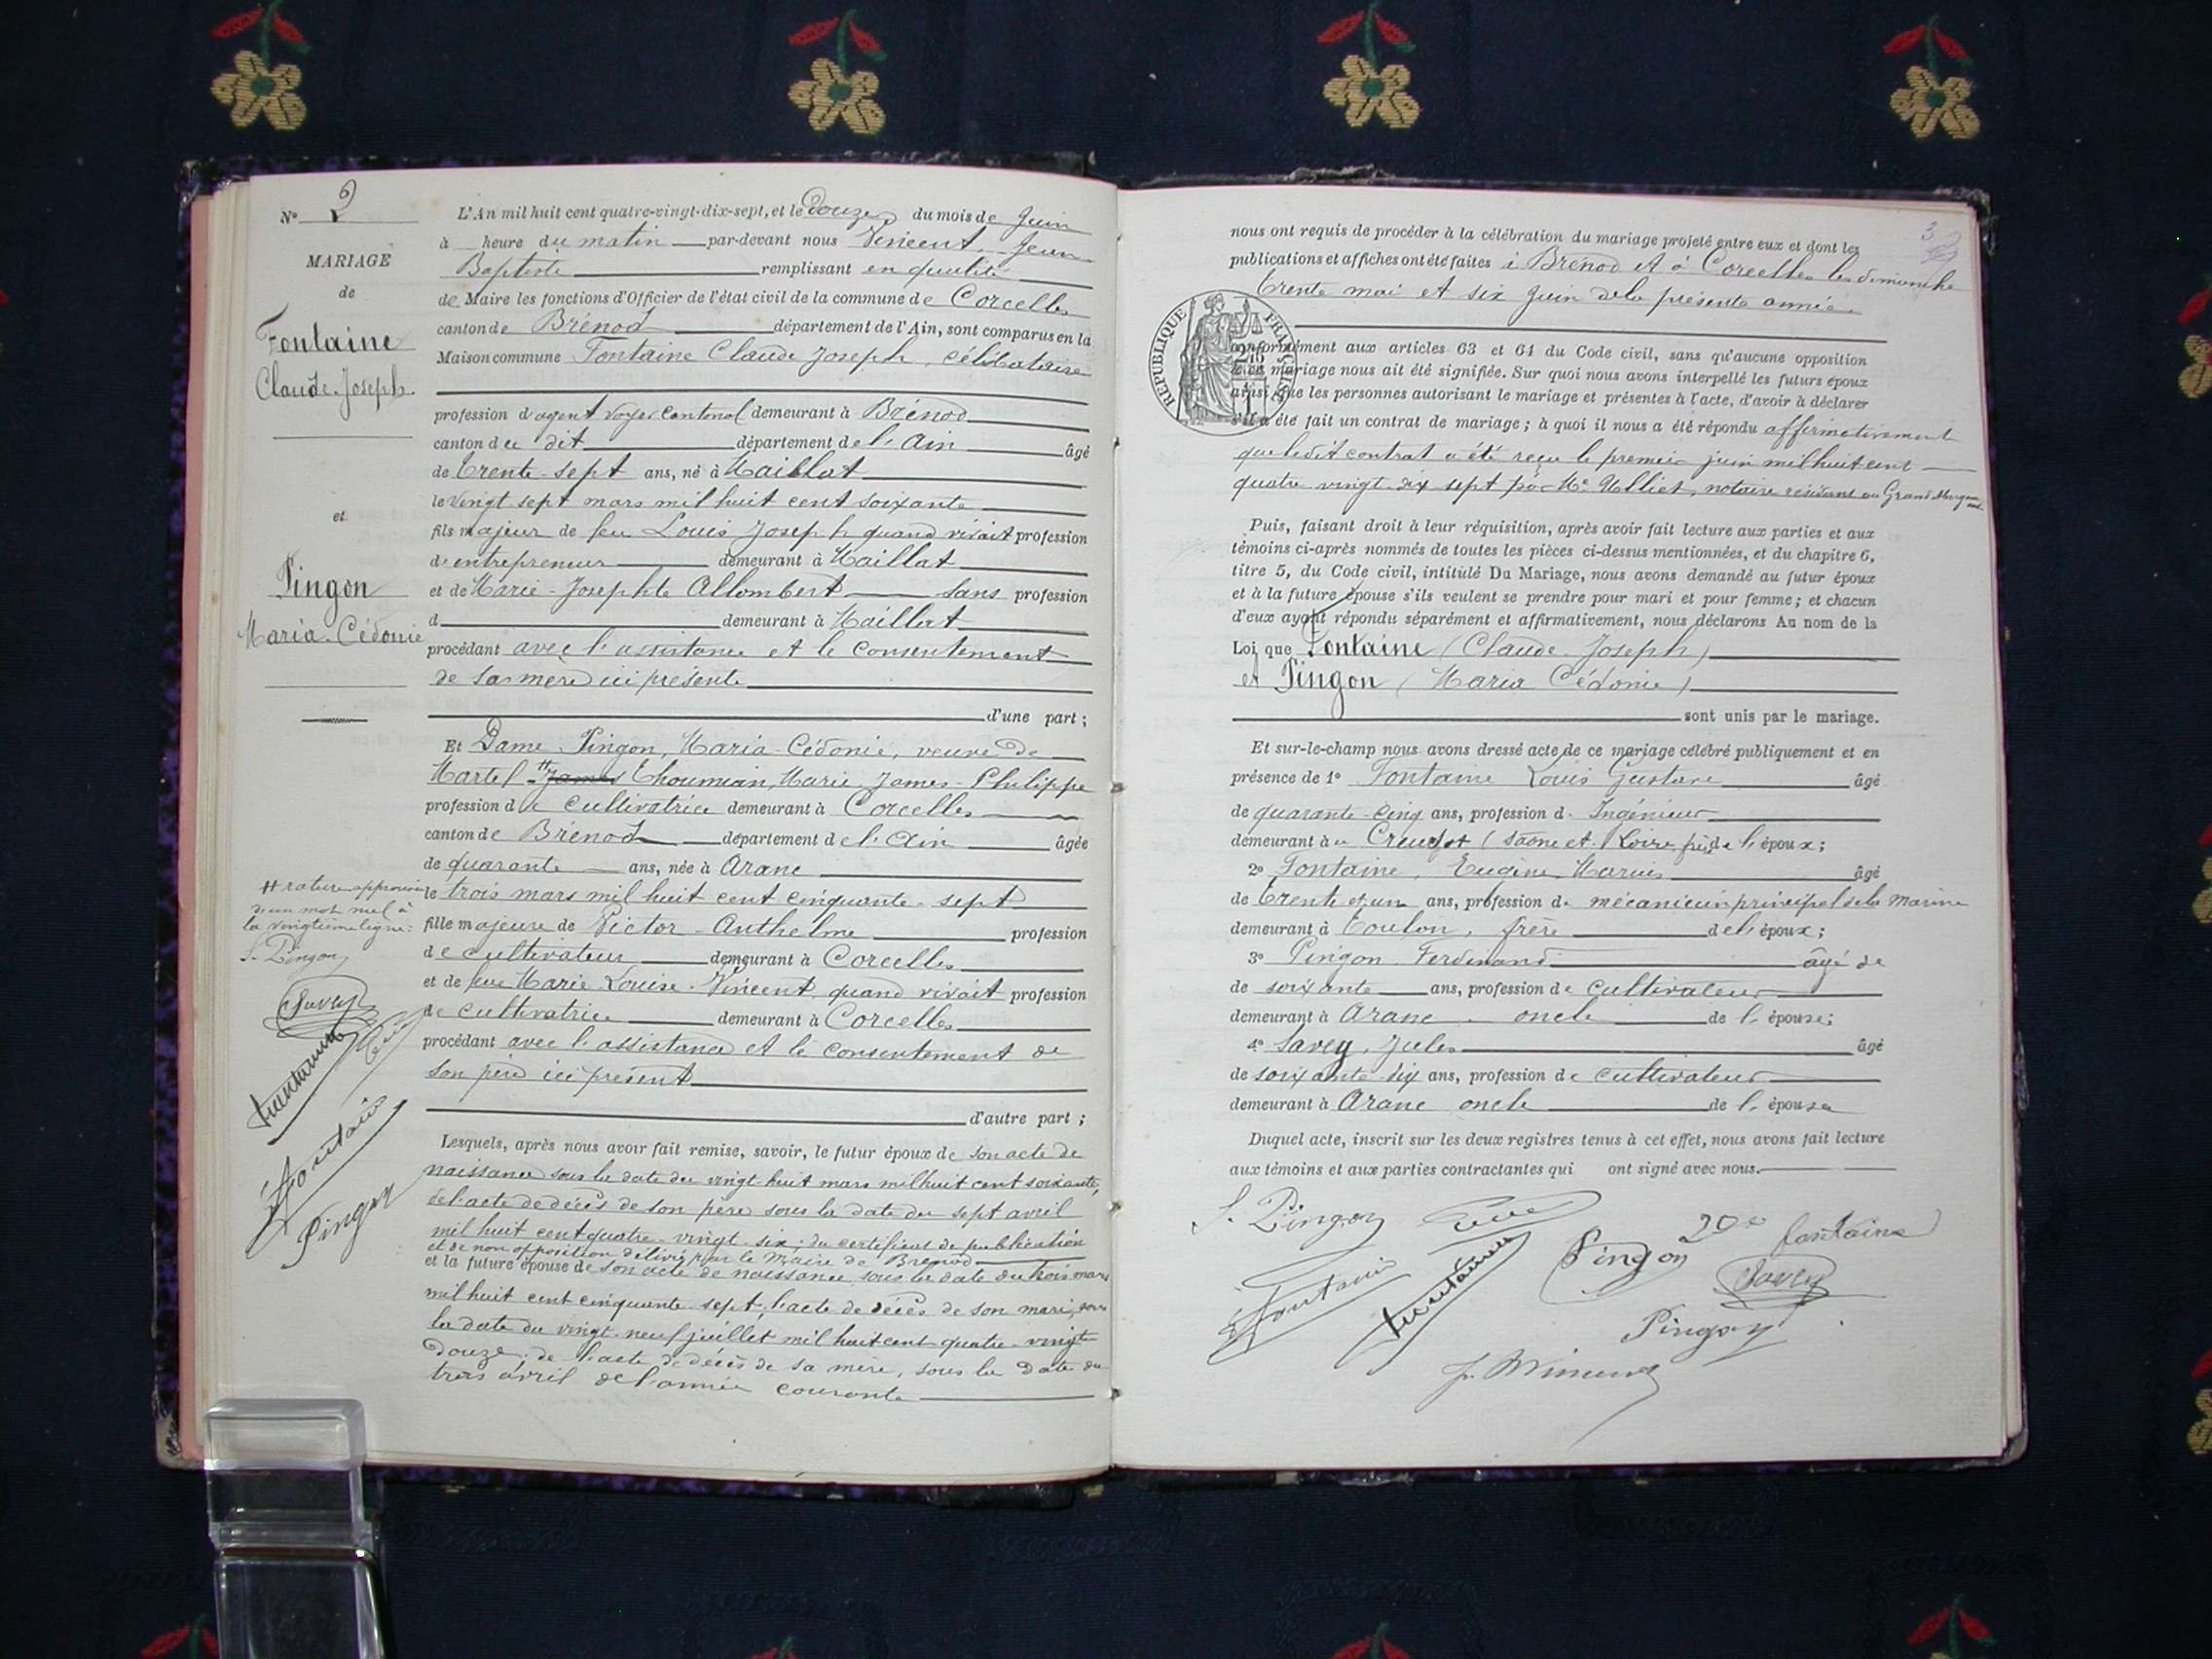 N° 2
MARIAGE
de
Fontaine
Claude-Joseph.
et
Pingon
Maria-Cédonie
# rature approuvée
d'un mot nul à
la vingtième ligne:
S. Pingon
Savey
Fontaine
Pingon
L'An mil huit cent quatre-vingt-dix-sept, et le douze du mois de Juin
à heure du matin par-devant nous Vincent, Jean
Baptiste remplissant en qualité
de Maire les fonctions d'Officier de l'état civil de la commune de Corcelles
canton de Brénod département de l'Ain, sont comparus en la
Maison commune Fontaine Claude Joseph, célibataire
profession d'agent voyer cantonal demeurant à Brénod
canton du dit département de l'Ain âgé
de trente-sept ans, né à Maillat
le vingt sept mars mil huit cent soixante
fils majeur de feu Louis Joseph quand vivait profession
d'entrepreneur demeurant à Maillat
et de Marie-Josephte Allombert sans profession
d demeurant à Maillat
procédant avec l'assistance et le consentement
de sa mère ici présente
d'une part;
Et Dame Pingon, Maria-Cédonie, veuve de
Martel # James Thoumian, Marie-James-Philippe
profession de cultivatrice demeurant à Corcelles
canton de Brénod département de l'Ain âgée
de quarante ans, née à Aranc
le trois mars mil huit cent cinquante-sept
fille majeure de Victor-Anthelme profession
de cultivateur demeurant à Corcelles
et de feue Marie Louise Vincent quand vivait profession
de cultivatrice demeurant à Corcelles
procédant avec l'assistance et le consentement de
son père ici présent
d'autre part;
Lesquels, après nous avoir fait remise, savoir, le futur époux de son acte de
naissance sous la date du vingt-huit mars mil huit cent soixante,
de l'acte de décès de son père sous la date du sept avril
mil huit cent quatre-vingt-six; du certificat de publication
et de non opposition délivré par le Maire de Brénod
et la future épouse de son acte de naissance sous la date du trois mars
mil huit cent cinquante-sept, l'acte de décès de son mari, sous
la date du vingt-neuf juillet mil huit cent quatre-vingt
douze; de l'acte de décès de sa mère, sous la date du
trois avril de l'année courante
3
nous ont requis de procéder à la célébration du mariage projeté entre eux et dont les
publications et affiches ont été faites à Brénod et à Corcelles les dimanche
trente mai et six Juin de la présente année.
RÉPUBLIQUE FRANÇAISE
conformément aux articles 63 et 64 du Code civil, sans qu'aucune opposition
à ce mariage nous ait été signifiée. Sur quoi nous avons interpellé les futurs époux
ainsi que les personnes autorisant le mariage et présentes à l'acte, d'avoir à déclarer
s'il a été fait un contrat de mariage; à quoi il nous a été répondu affirmativement
que le dit contrat a été reçu le premier juin mil huit cent
quatre vingt dix sept par Me Ulliet, notaire résidant au Grand Abergement
Puis, faisant droit à leur réquisition, après avoir fait lecture aux parties et aux
témoins ci-après nommés de toutes les pièces ci-dessus mentionnées, et du chapitre 6,
titre 5, du Code civil, intitulé Du Mariage, nous avons demandé au futur époux
et à la future épouse s'ils veulent se prendre pour mari et pour femme; et chacun
d'eux ayant répondu séparément et affirmativement, nous déclarons Au nom de la
Loi que Fontaine (Claude-Joseph)
et Pingon (Maria Cédonie)
sont unis par le mariage.
Et sur-le-champ nous avons dressé acte de ce mariage célébré publiquement et en
présence de 1° Fontaine Louis Gustave âgé
de quarante-cinq ans, profession d. Ingénieur
demeurant au Creusot (Saône et Loire) frère de l'époux;
2° Fontaine, Eugène-Marius âgé
de trente et un ans, profession de mécanicien principal de la marine
demeurant à Toulon, frère de l'époux;
3° Pingon Ferdinand âgé de
de soixante ans, profession de cultivateur
demeurant à Aranc oncle de l'épouse;
4° Savey, Jules âgé
de soixante-dix ans, profession de cultivateur
demeurant à Aranc oncle de l'épouse
Duquel acte, inscrit sur les deux registres tenus à cet effet, nous avons fait lecture
aux témoins et aux parties contractantes qui ont signé avec nous.
S. Pingon
Pingon
Fontaine
Fontaine
Savey
Pingon